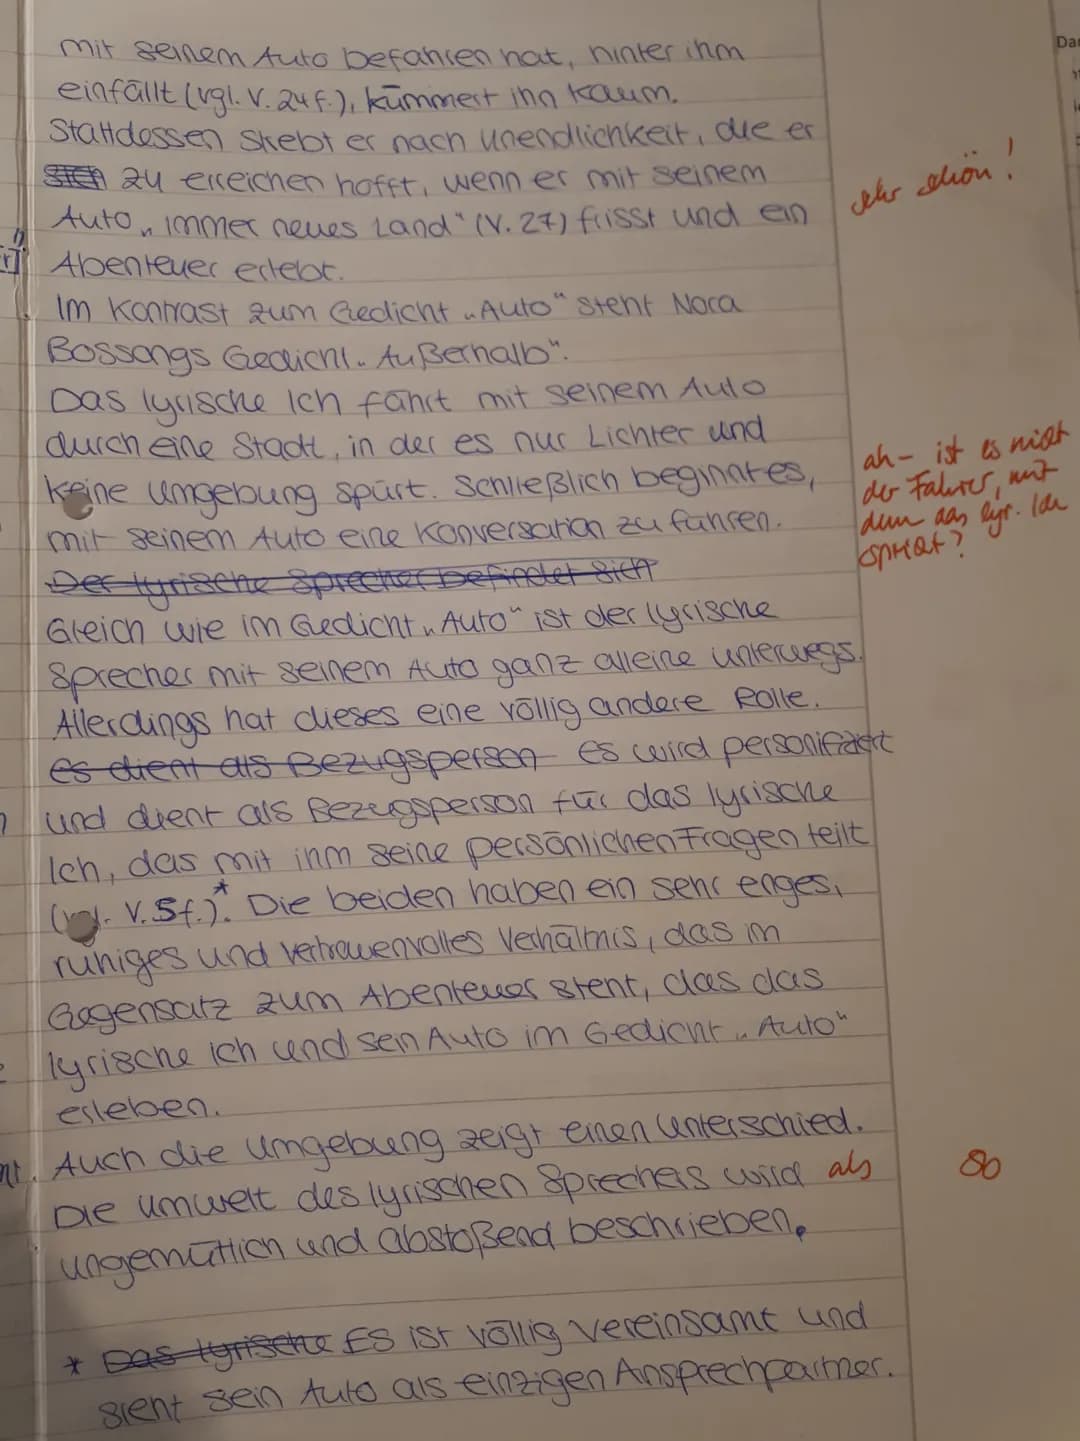 mit seinem Auto befahren hat, hinter ihm
einfällt (vgl. V. 24 f.), kümmert ihn kaum.
Stattdessen strebt er nach Unendlichkeit, die er
sich zu erreichen hofft, wenn er mit seinem
Auto „immer neues Land" (V. 27) frisst und ein
Abenteuer erlebt.
sehr schön!
Im Kontrast zum Gedicht „Auto" steht Nora
Bossongs Gedicht „Außerhalb".
Das lyrische Ich fährt mit seinem Auto
durch eine Stadt, in der es nur Lichter und
keine Umgebung spürt. Schließlich beginnt es,
mit seinem Auto eine Konversation zu führen.
ah - ist es nicht
der Fahrer, mit
dem das lyr. Ich
spricht?
Der lyrische Sprecher befindet sich
Gleich wie im Gedicht „Auto" ist der lyrische
Sprecher mit seinem Auto ganz alleine unterwegs.
Allerdings hat dieses eine völlig andere Rolle.
Es dient als Bezugsperson Es wird personifiziert
und dient als Bezugsperson für das lyrische
Ich, das mit ihm seine persönlichen Fragen teilt
(vgl. V. 5f.).* Die beiden haben ein sehr enges,
ruhiges und vertrauenvolles Verhältnis, das im
Gegensatz zum Abenteuer steht, das das
lyrische Ich und sein Auto im Gedicht „Auto"
erleben.
Auch die Umgebung zeigt einen Unterschied.
Die Umwelt des lyrischen Sprechers wird als
ungemütlich und abstoßend beschrieben.
So
* Das lyrische Es ist völlig vereinsamt und
sieht sein Auto als einzigen Ansprechpartner.
Da